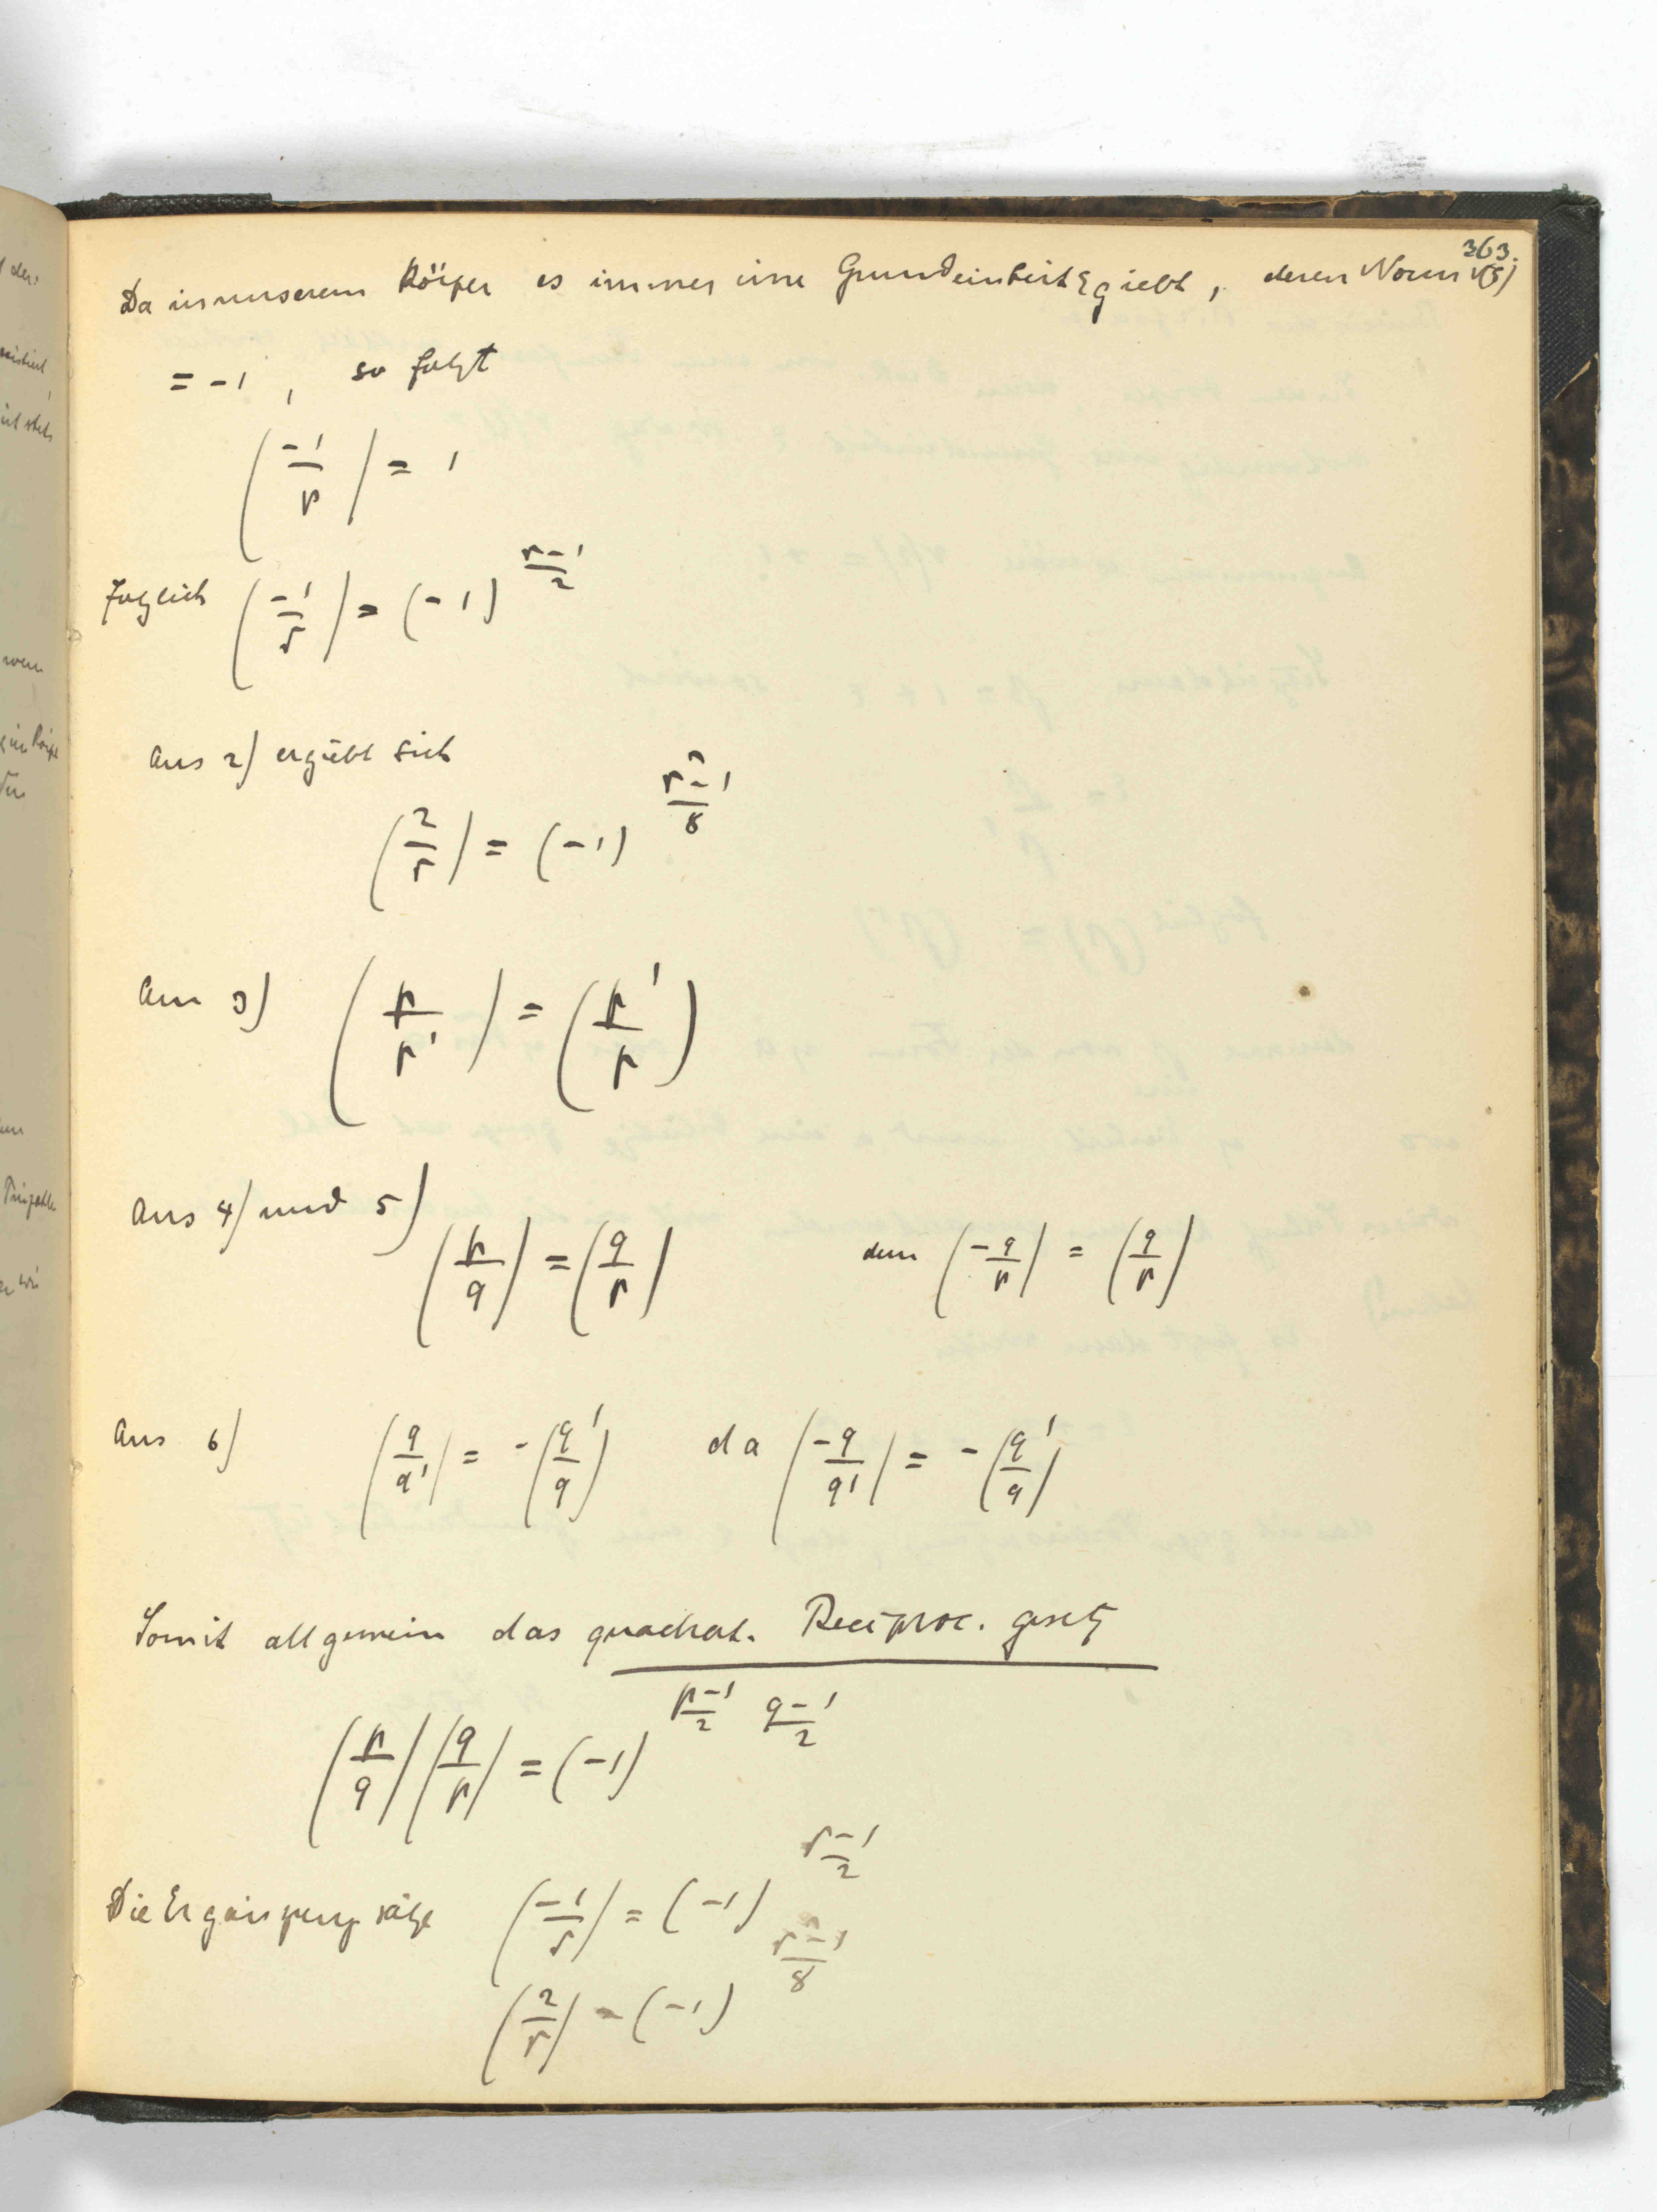 363.
Da in unserem Körper es immer eine Grundeinheit ε giebt, deren Norm ν(ε)
= -1, so folgt
(-1/p) = 1
folglich (-1/r) = (-1)^((r-1)/2)
Aus 2) ergiebt sich
(2/r) = (-1)^((r²-1)/8)
Aus 3) (p/p') = (p'/p)
Aus 4) und 5)
(p/q) = (q/p) denn (-q/p) = (q/p)
Aus 6) (q/q') = -(q'/q) da (-q/q') = -(q'/q)
Somit allgemein das quadrat. Reciproc. gesetz
(p/q)(q/p) = (-1)^((p-1)/2 (q-1)/2)
Die Ergänzungssätze (-1/r) = (-1)^((r-1)/2)
(2/r) = (-1)^((r²-1)/8)